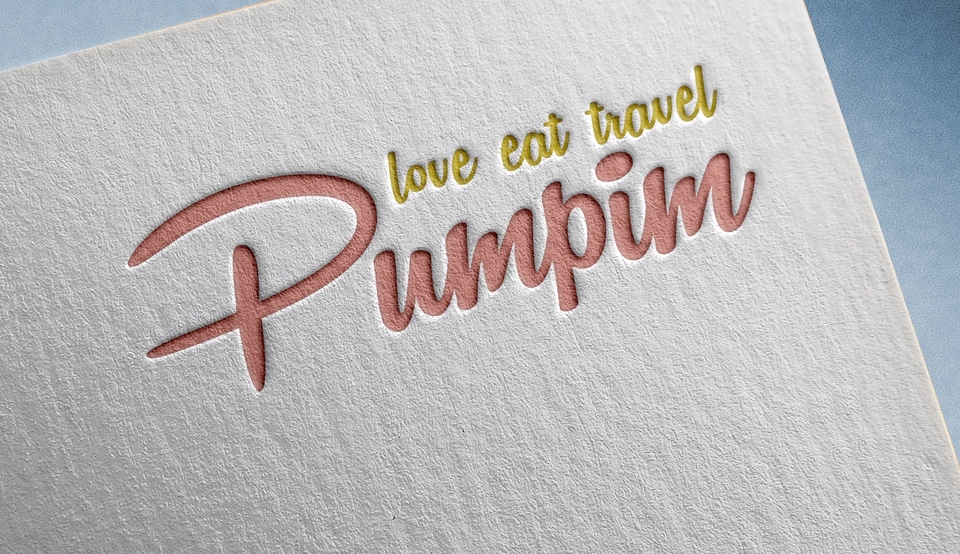 love eat travel
Pumpim